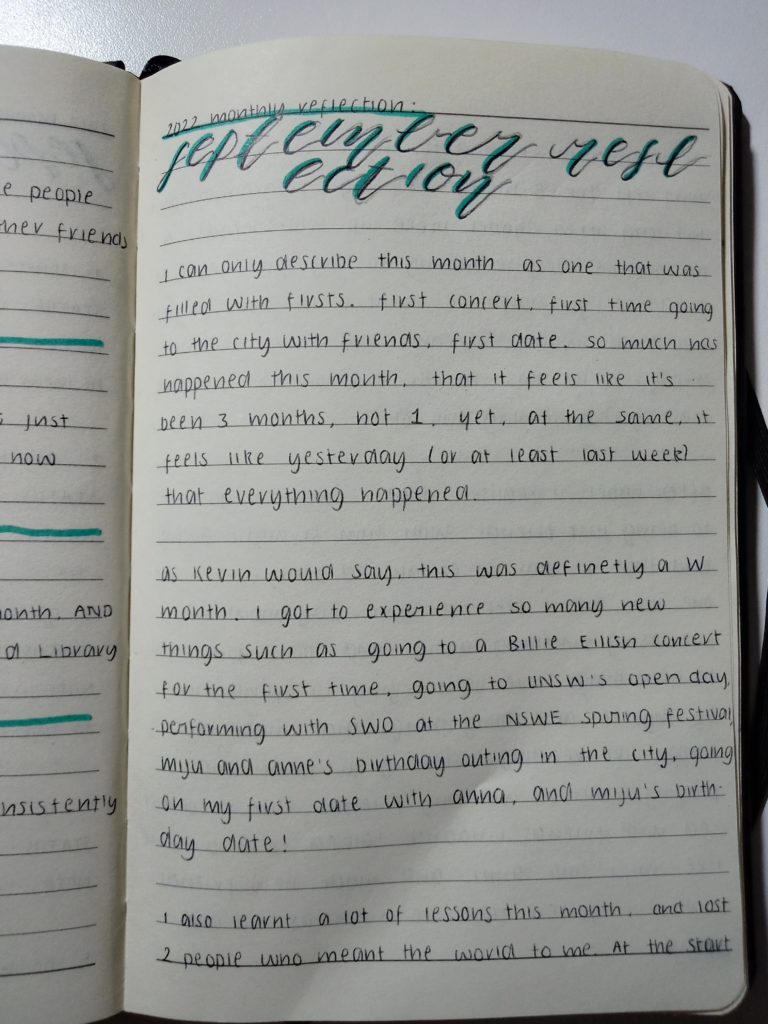 e people
ner friends
just
now
onth. AND
d Library
nsistently
2022 monthly reflection:
september refl
ection
I can only describe this month as one that was
filled with firsts. first concert, first time going
to the city with friends, first date. so much has
happened this month, that it feels like it's
been 3 months, not 1. yet, at the same, it
feels like yesterday (or at least last week)
that everything happened.
as Kevin would say, this was definetly a W
month. I got to experience so many new
things such as going to a Billie Eilish concert
for the first time, going to UNSW's open day,
performing with SWO at the NSWE spuring festival,
miju and anne's birthday outing in the city, going
on my first date with anna, and miju's birth-
day date!
I also learnt a lot of lessons this month, and lost
2 people who meant the world to me. At the start